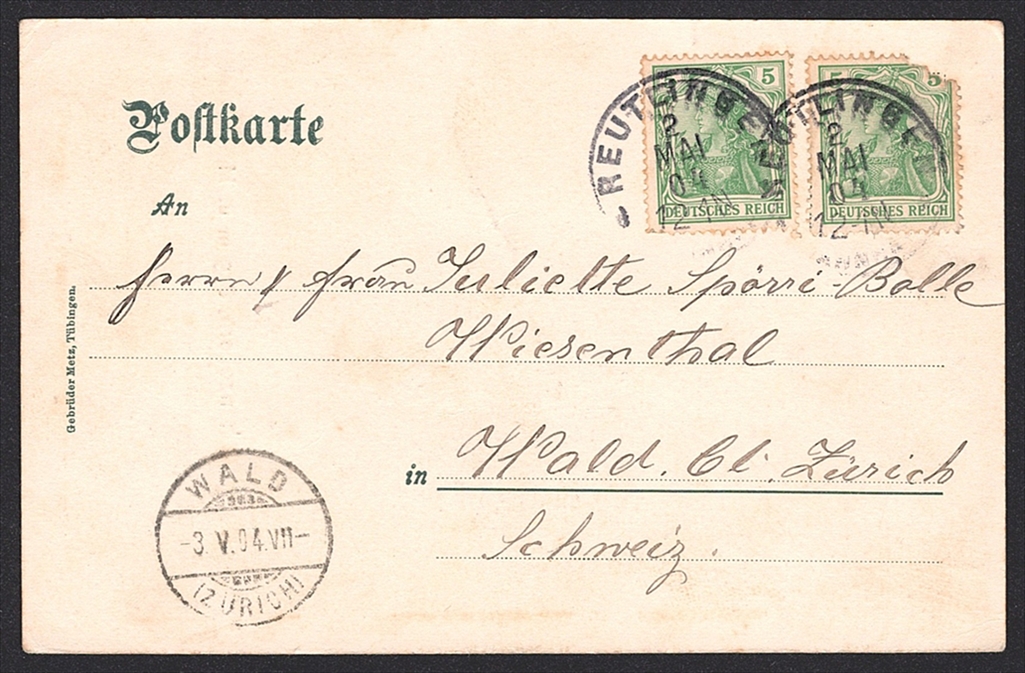 Postkarte
5
5
5
DEUTSCHES REICH
DEUTSCHES REICH
REUTLINGEN
2
MAI
04
12-1N
REUTLINGEN
2
MAI
04
12-1N
An
Herrn / Frau Juliette Spörri-Bolle
Wiesenthal
in Wald. Ct. Zürich
Schweiz.
Gebrüder Metz, Tübingen.
WALD
-3.V.04.VII-
(ZÜRICH)